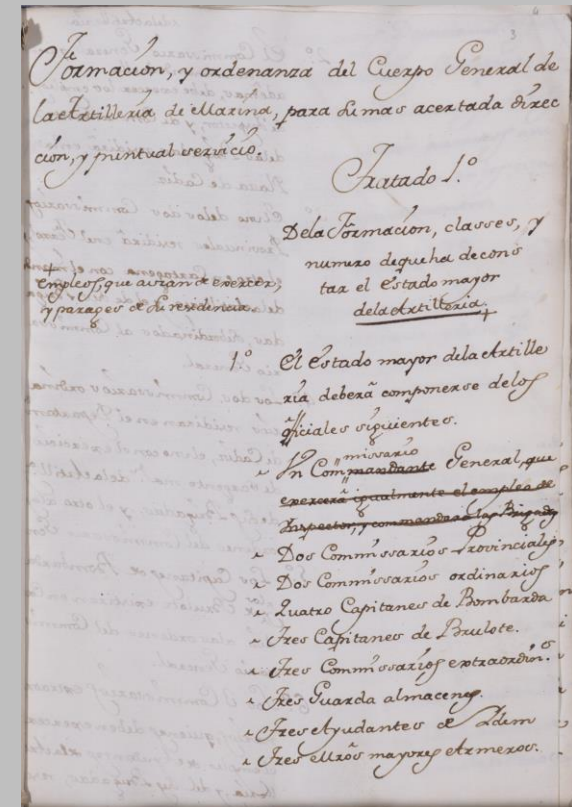 3
Formación, y ordenanza del Cuerpo General de
la Artilleria de Marina, para su mas acertada direc
cion, y puntual servicio.
Tratado 1.º
De la Formacion, classes, y
numero de que ha de cons
tar el Estado mayor
de la Artilleria. +
+
empleos, que avran de exercer,
y parages de su residencia.
1.º El Estado mayor de la Artille
ria, deberá componerse de los
oficiales siguientes.
missario
Vn Commandante General, que
exercerá igualmente el empleo de
Inspector, y commandará las Brigadas
Dos Commissarios Provinciales
Dos Commissarios ordinarios
Quatro Capitanes de Bombarda
Tres Capitanes de Brulote.
Tres Commissarios extraordin.s
Tres Guarda almacenes.
Tres Ayudantes de Idem
Tres Mros mayores Armeros.